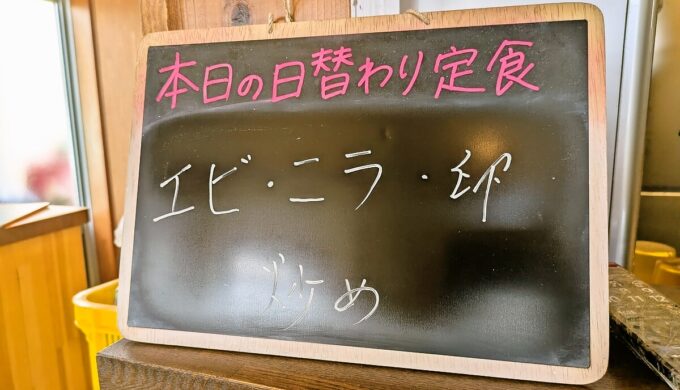 本日の日替わり定食
エビ・ニラ・卵
炒め